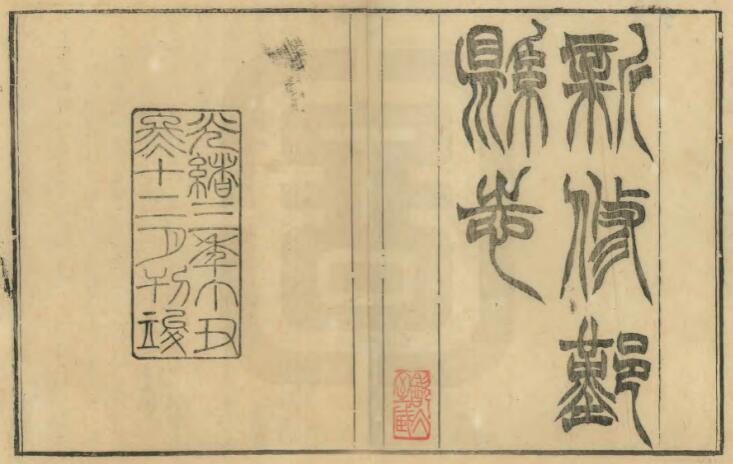 新修鄞
縣志
光緒三年丁丑
冬十二月刊竣